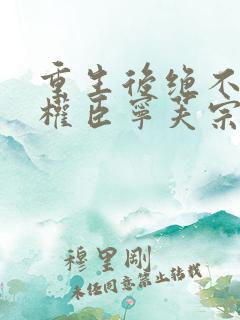 重生後绝不
權臣寧芙宗
穆里剛
未经同意禁止转载